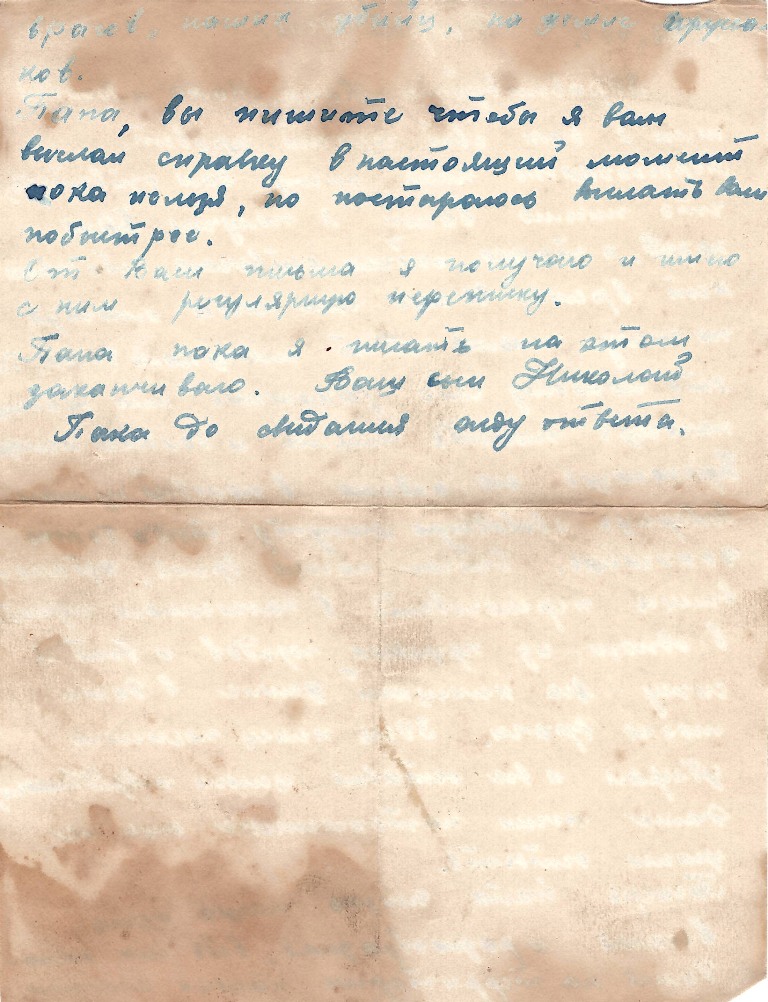 врагов, нашли на земле
ков.
Папа, вы пишите чтобы я вам
выслал справку в настоящий момент
пока нельзя, но постараюсь выслать вам
побыстрее.
От Ваш письма я получаю и имею
с ним регулярную переписку.
Папа пока я писать на этом
заканчиваю. Ваш сын Николай
Пака до свидания жду ответа.